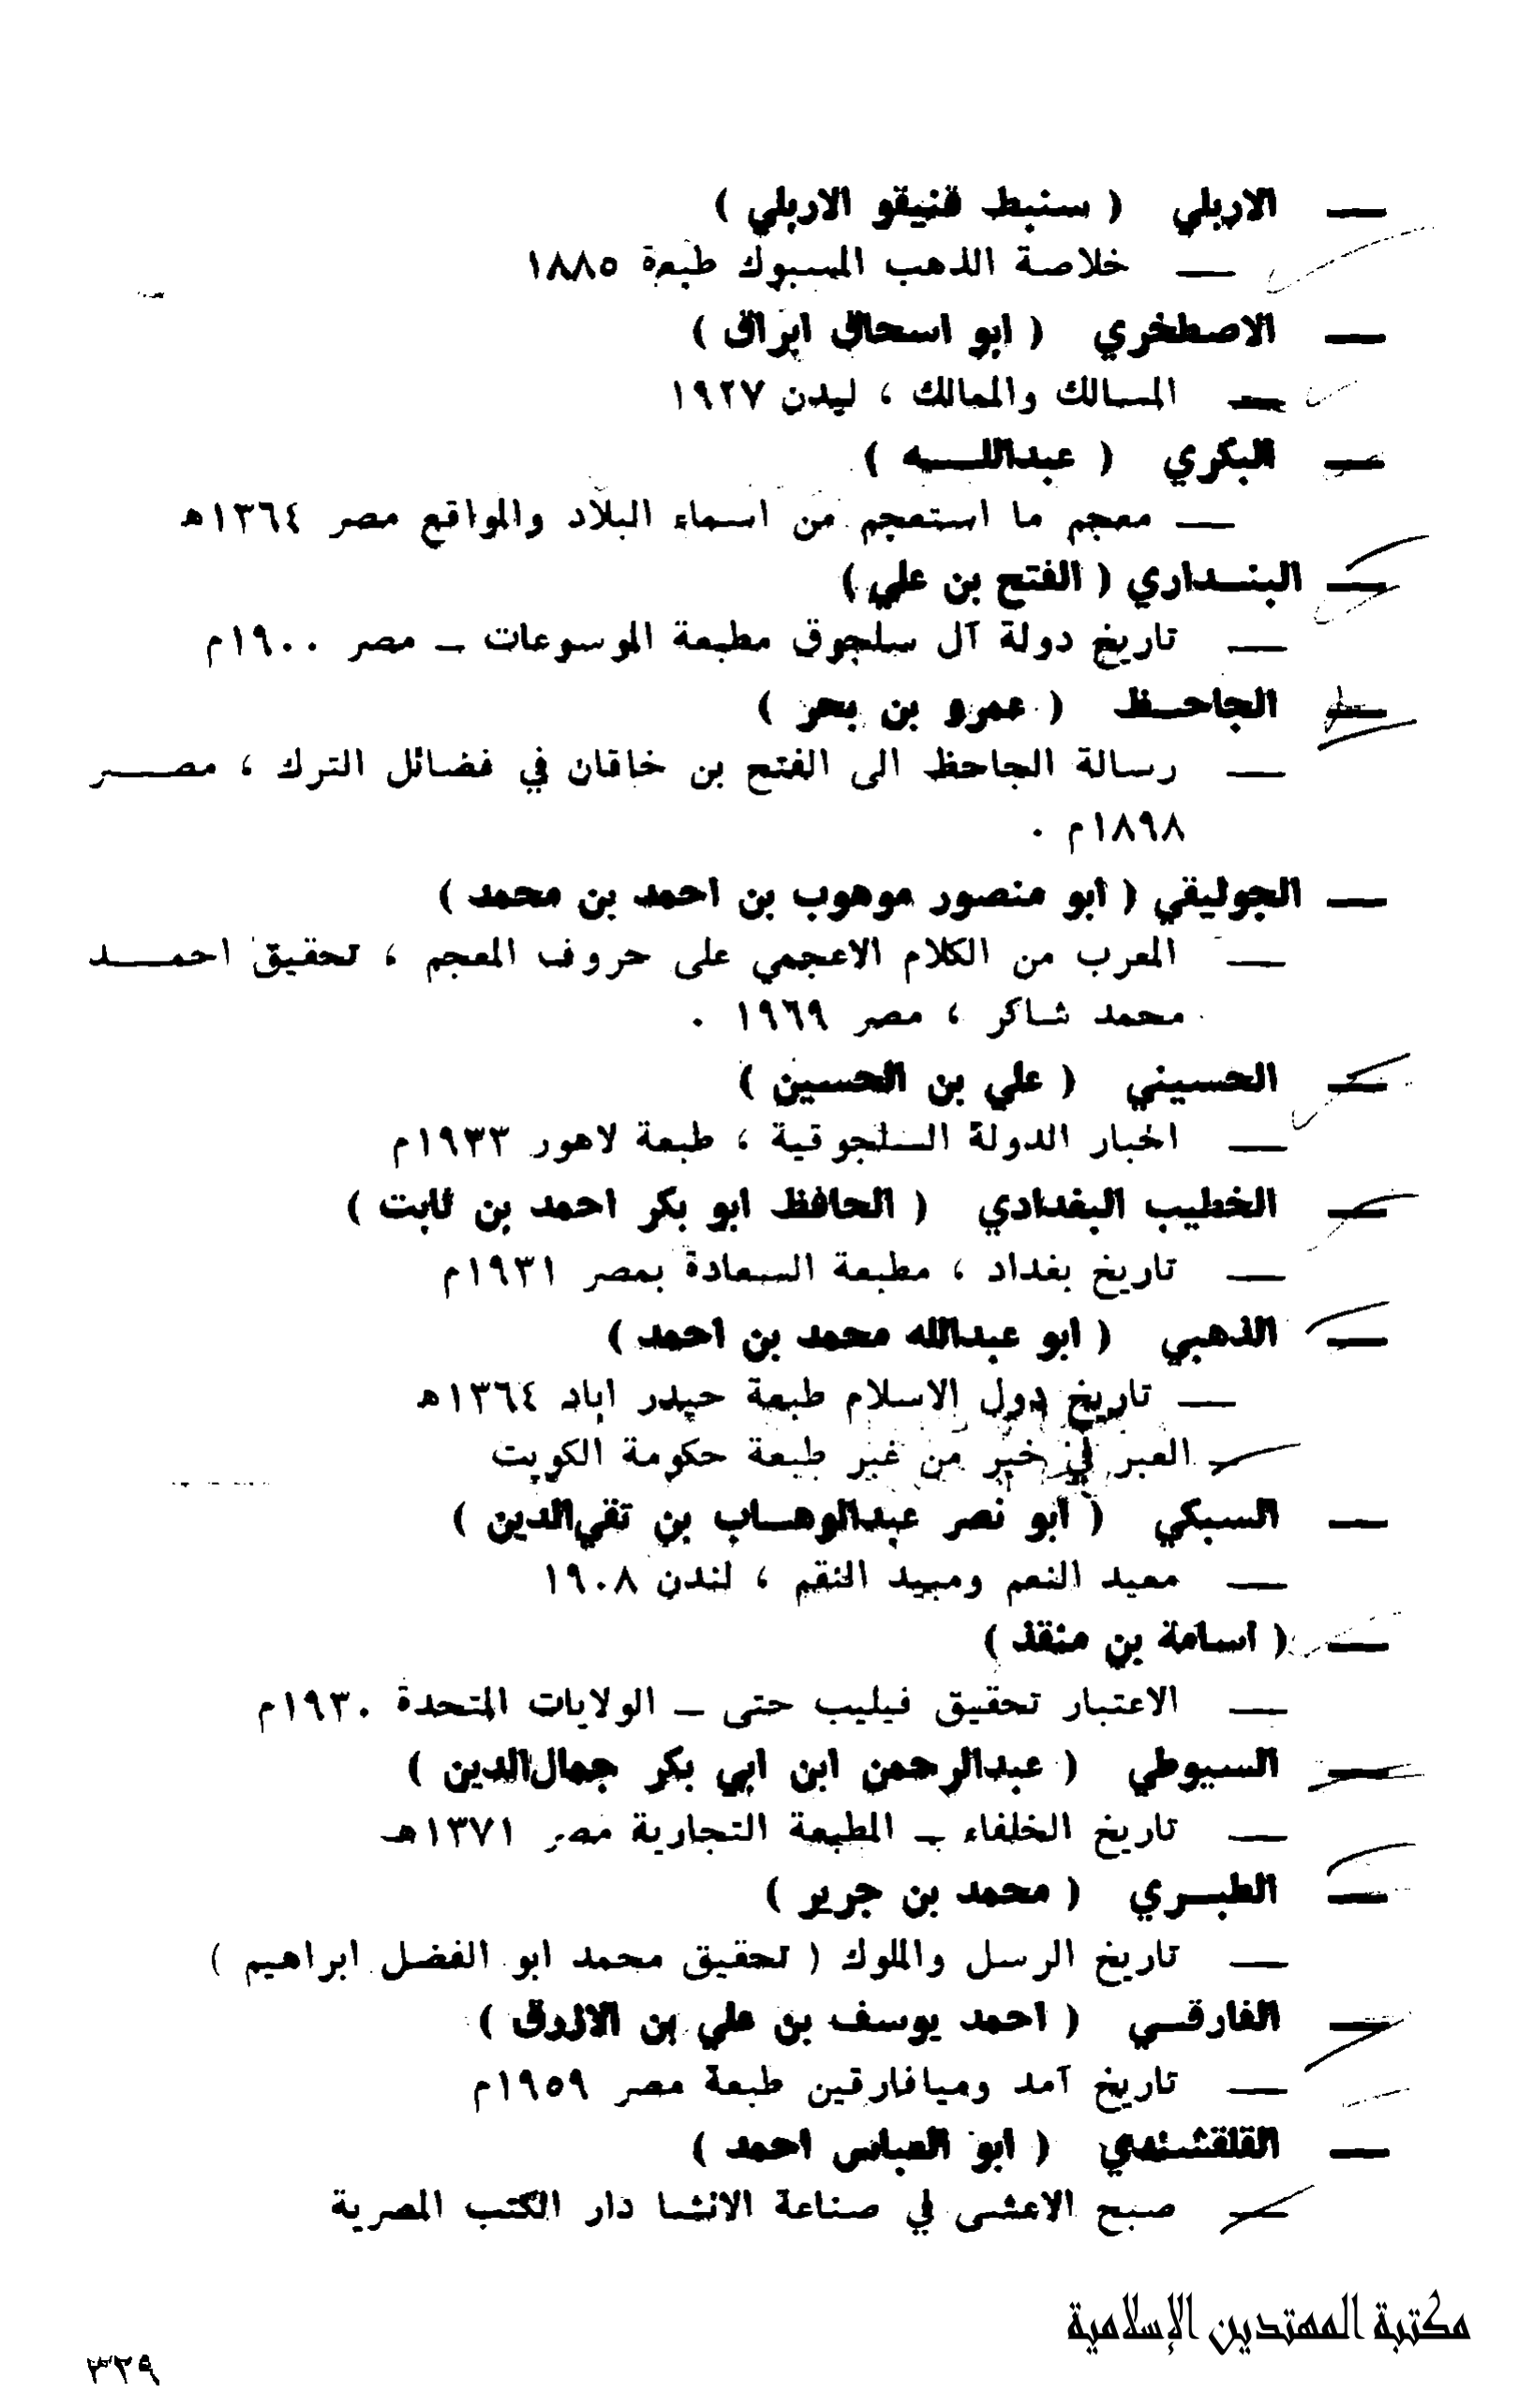 — الاربلي ( سنبط قنيقو الاربلي )
— خلاصة الذهب المسبوك طبعة ١٨٨٥
— الاصطخري ( ابو اسحاق ابراق )
— المسالك والممالك ، ليدن ١٩٢٧
— البكري ( عبداللــه )
— معجم ما استعجم من اسماء البلاد والمواقع مصر ١٣٦٤هـ
— البنــداري ( الفتح بن علي )
— تاريخ دولة آل سلجوق مطبعة الموسوعات – مصر ١٩٠٠م
— الجاحــظ ( عمرو بن بحر )
— رسالة الجاحظ الى الفتح بن خاقان في فضائل الترك ، مصــر
١٨٩٨م .
— الجوليقي ( ابو منصور موهوب بن احمد بن محمد )
— المعرب من الكلام الاعجمي على حروف المعجم ، تحقيق احمــد
محمد شاكر ، مصر ١٩٦٩ .
— الحسيني ( علي بن الحسين )
— اخبار الدولة السلجوقية ، طبعة لاهور ١٩٣٣م
— الخطيب البغدادي ( الحافظ ابو بكر احمد بن ثابت )
— تاريخ بغداد ، مطبعة السعادة بمصر ١٩٣١م
— الذهبي ( ابو عبدالله محمد بن احمد )
— تاريخ دول الاسلام طبعة حيدر اباد ١٣٦٤هـ
العبر في خبر من غبر طبعة حكومة الكويت
— السبكي ( ابو نصر عبدالوهــاب بن تقي‌الدين )
— معيد النعم ومبيد النقم ، لندن ١٩٠٨
— ( اسامة بن منقذ )
— الاعتبار تحقيق فيليب حتى – الولايات المتحدة ١٩٣٠م
— السيوطي ( عبدالرحمن ابن ابي بكر جمال‌الدين )
— تاريخ الخلفاء – المطبعة التجارية مصر ١٣٧١هـ
— الطبــري ( محمد بن جرير )
— تاريخ الرسل والملوك ( تحقيق محمد ابو الفضل ابراهيم )
— الفارقــي ( احمد يوسف بن علي بن الازرق )
— تاريخ آمد وميافارقين طبعة مصر ١٩٥٩م
— القلقشندي ( ابو العباس احمد )
— صبح الاعشى في صناعة الانشا دار الكتب المصرية
مكتبة المهتدين الإسلامية
٣٢٩